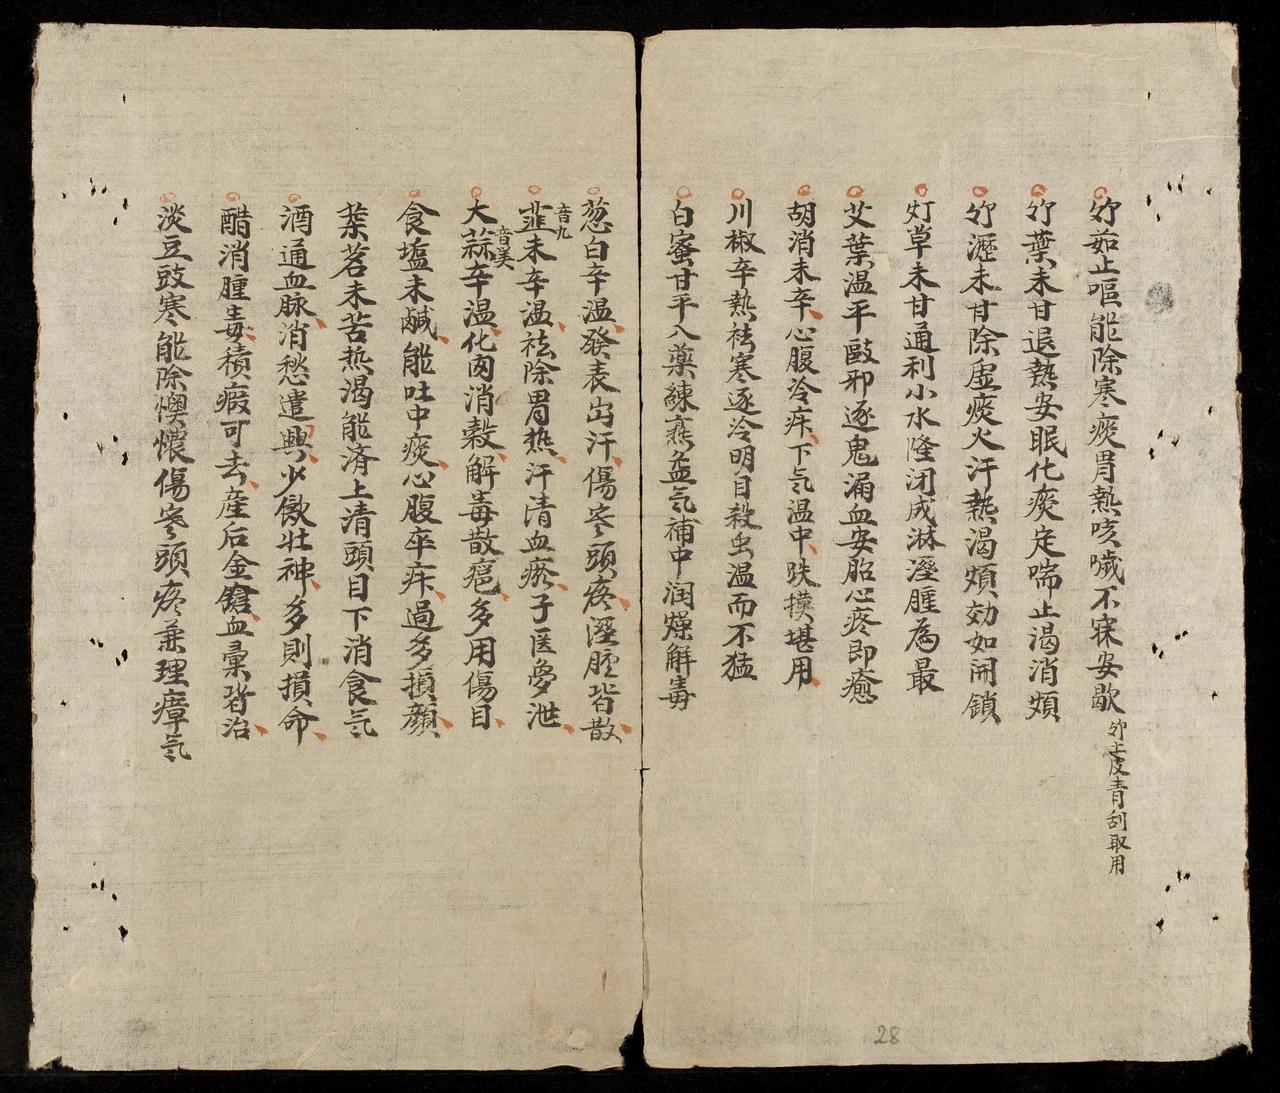 竹茹止嘔能除寒痰胃熱咳噦不寐安歇竹上皮青刮取用
竹葉未甘退熱安眠化痰定喘止渴消煩
竹瀝未甘除虛痰火汗熱渴煩効如開鎖
灯草未甘通利小水隆闭成淋溼腫為最
艾葉温平毆邪逐鬼漏血安胎心疼即癒
胡消未辛心腹冷疾下気温中跌撲堪用
川椒辛熱袪寒逐冷明目殺虫温而不猛
白蜜甘平入藥練熟益気補中润燥解毒
葱白辛温發表出汗傷寒頭疼溼腫皆散
韮音九未辛温祛除胃热汗清血瘀子医夢泄
大蒜音筭辛温化肉消穀解毒散癰多用傷目
食塩未鹹能吐中痰心腹卒疾過多損顏
葉茗未苦热渴能済上清頭目下消食気
酒通血脉消愁遣興少飲壮神多則損命
醋消腫毒積瘕可去産后金鎗血暈皆治
淡豆豉寒能除懊憹傷寒頭疼兼理瘴気
28